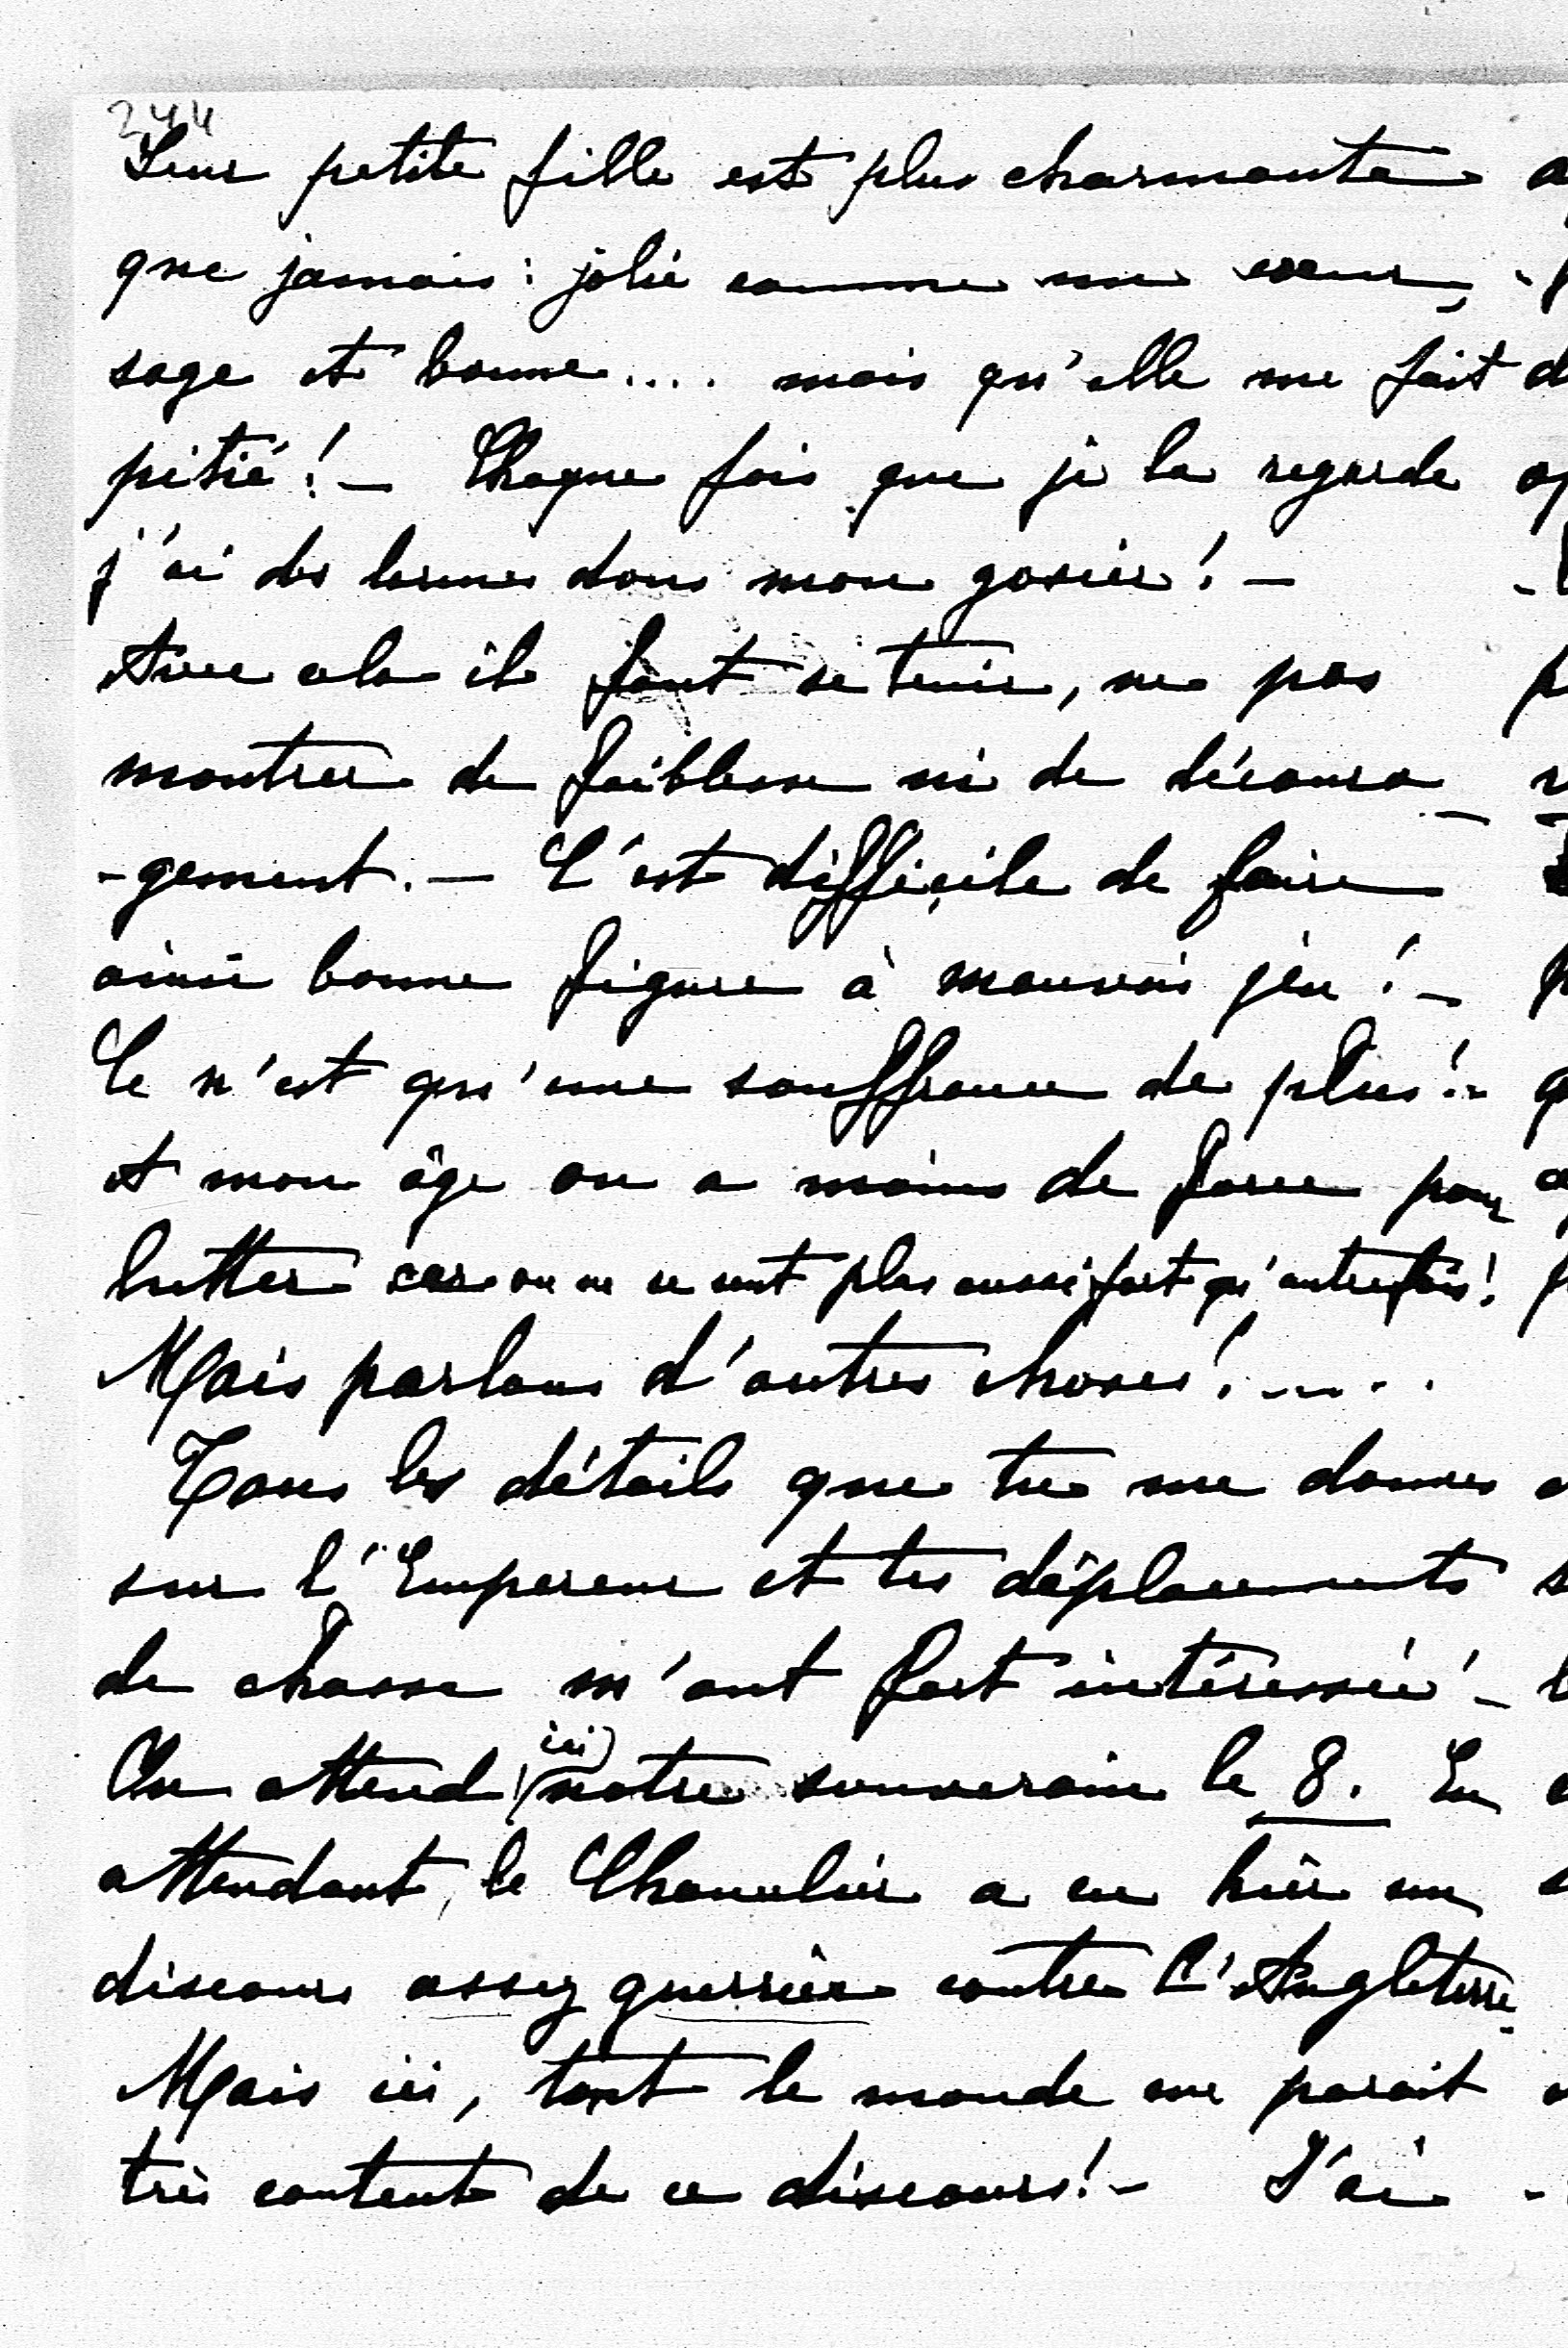 244
Leur petite fille est plus charmante
que jamais : jolie comme un cœur,
sage et bonne .... mais qu'elle me fait
pitié ! — Chaque fois que je la regarde
j'ai des larmes dans mon gosier ! —
Avec cela il faut se tenir, ne pas
montrer de faiblesse ni de découra_
-gement. — C'est difficile de faire
ainsi bonne figure à mauvais jeu ! —
Ce n'est qu'une souffrance de plus ! -
A mon âge on a moins de force pour
lutter car on ne se sent plus aussi fort qu'autrefois !
Mais parlons d'autres choses ! .....
Tous les détails que tu me donnes
sur l'Empereur et tes déplacements
de chasse m'ont fort intéressée —
On attend ici notre souverain le 8. En
attendant, le Chancelier a eu hier un
discours assez guerrier contre l'Angleterre.
Mais ici, tout le monde me parait
très content de ce discours ! - J'ai